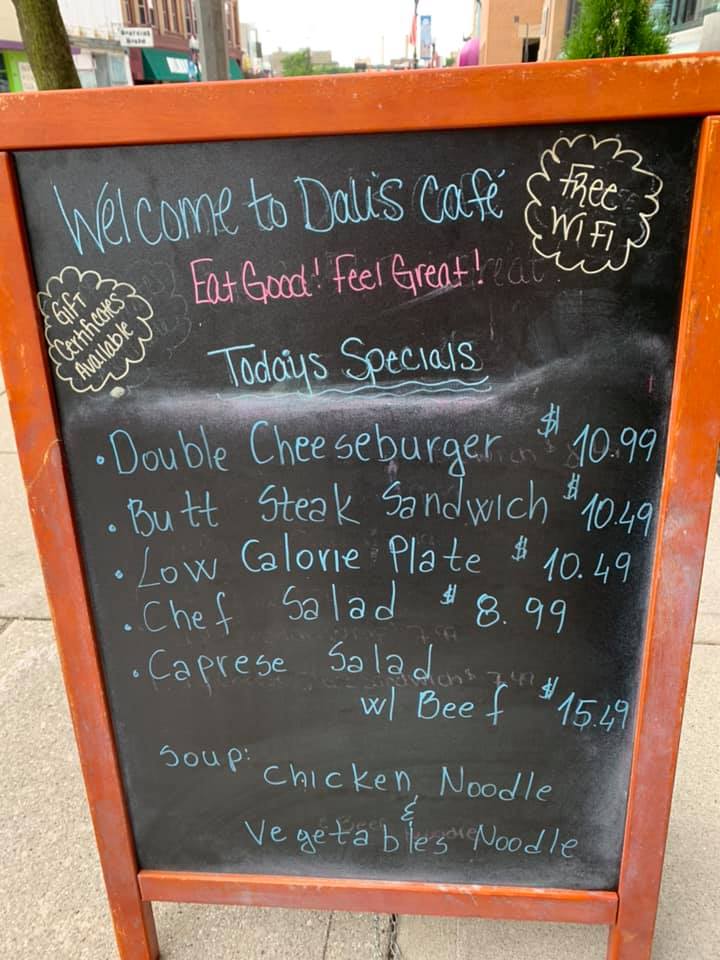 Welcome to Dali's Café
Free
WiFi
Eat Good! Feel Great!
Gift
Certificates
Available
Todays Specials
• Double Cheeseburger $10.99
• Butt Steak Sandwich $10.49
• Low Calorie Plate $10.49
• Chef Salad $8.99
• Caprese Salad
w/ Beef $15.49
Soup:
Chicken Noodle
&
Vegetables Noodle